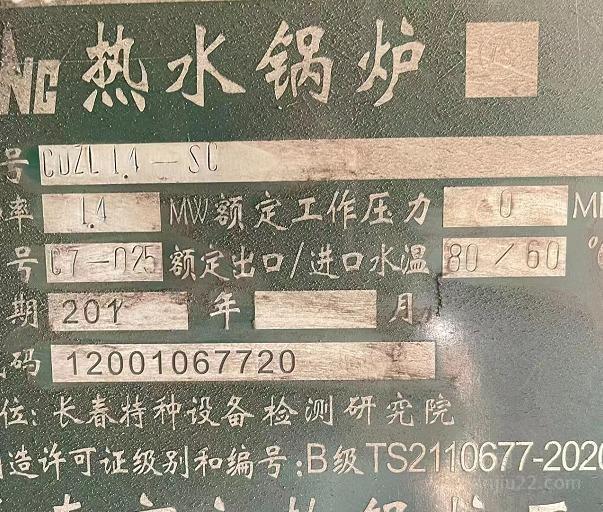 NG 热水锅炉
号 CDZL1.4-SC
率 1.4 MW 额定工作压力 0 M
号 C7-025 额定出口/进口水温 80/60 °
期 201 年 月
码 12001067720
位: 长春特种设备检测研究院
造许可证级别和编号: B级 TS2110677-2020